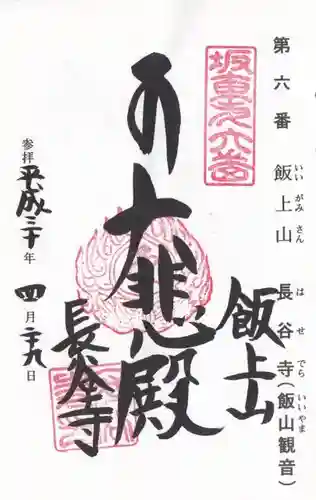 第六番 飯上山 長谷寺(飯山観音)
いい がみ さん は せ でら いいやま
坂東第六番
飯上山
大悲殿
長谷寺
参拝 平成三十年 四月二十九日